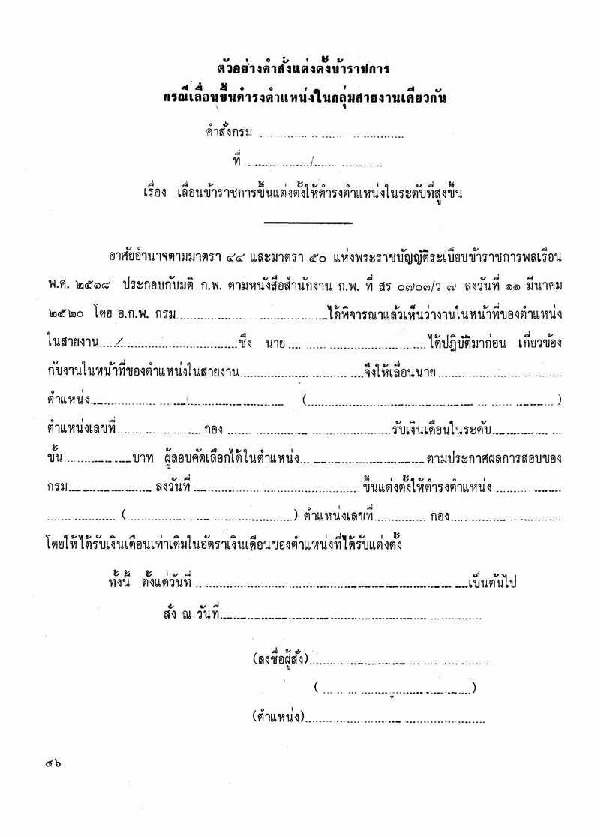 ตัวอย่างคำสั่งแต่งตั้งข้าราชการ
กรณีเลื่อนขึ้นดำรงตำแหน่งในกลุ่มสายงานเดียวกัน
คำสั่งกรม ........................................
ที่ ................/................
เรื่อง เลื่อนข้าราชการขึ้นแต่งตั้งให้ดำรงตำแหน่งในระดับที่สูงขึ้น
อาศัยอำนาจตามมาตรา ๔๔ และมาตรา ๕๐ แห่งพระราชบัญญัติระเบียบข้าราชการพลเรือน
พ.ศ. ๒๕๑๘ ประกอบกับมติ ก.พ. ตามหนังสือสำนักงาน ก.พ. ที่ สร ๐๗๐๓/ว ๗ ลงวันที่ ๑๑ มีนาคม
๒๕๒๐ โดย อ.ก.พ. กรม ................................ ได้พิจารณาแล้วเห็นว่างานในหน้าที่ของตำแหน่ง
ในสายงาน ................ ซึ่ง นาย ................................ ได้ปฏิบัติมาก่อน เกี่ยวข้อง
กับงานในหน้าที่ของตำแหน่งในสายงาน ................................ จึงให้เลื่อนนาย ................................
ตำแหน่ง ................................ (................................................)
ตำแหน่งเลขที่ ................ กอง ................................ รับเงินเดือนในระดับ ................
ขั้น ................ บาท ผู้สอบคัดเลือกได้ในตำแหน่ง ................................ ตามประกาศผลการสอบของ
กรม ................ ลงวันที่ ................................ ขึ้นแต่งตั้งให้ดำรงตำแหน่ง ................
................ (................................) ตำแหน่งเลขที่ ................ กอง ................
โดยให้ได้รับเงินเดือนเท่าเดิมในอัตราเงินเดือนของตำแหน่งที่ได้รับแต่งตั้ง
ทั้งนี้ ตั้งแต่วันที่ ................................................ เป็นต้นไป
สั่ง ณ วันที่ ................................................
(ลงชื่อผู้สั่ง) ................................
(................................)
(ตำแหน่ง) ................................
๕๖